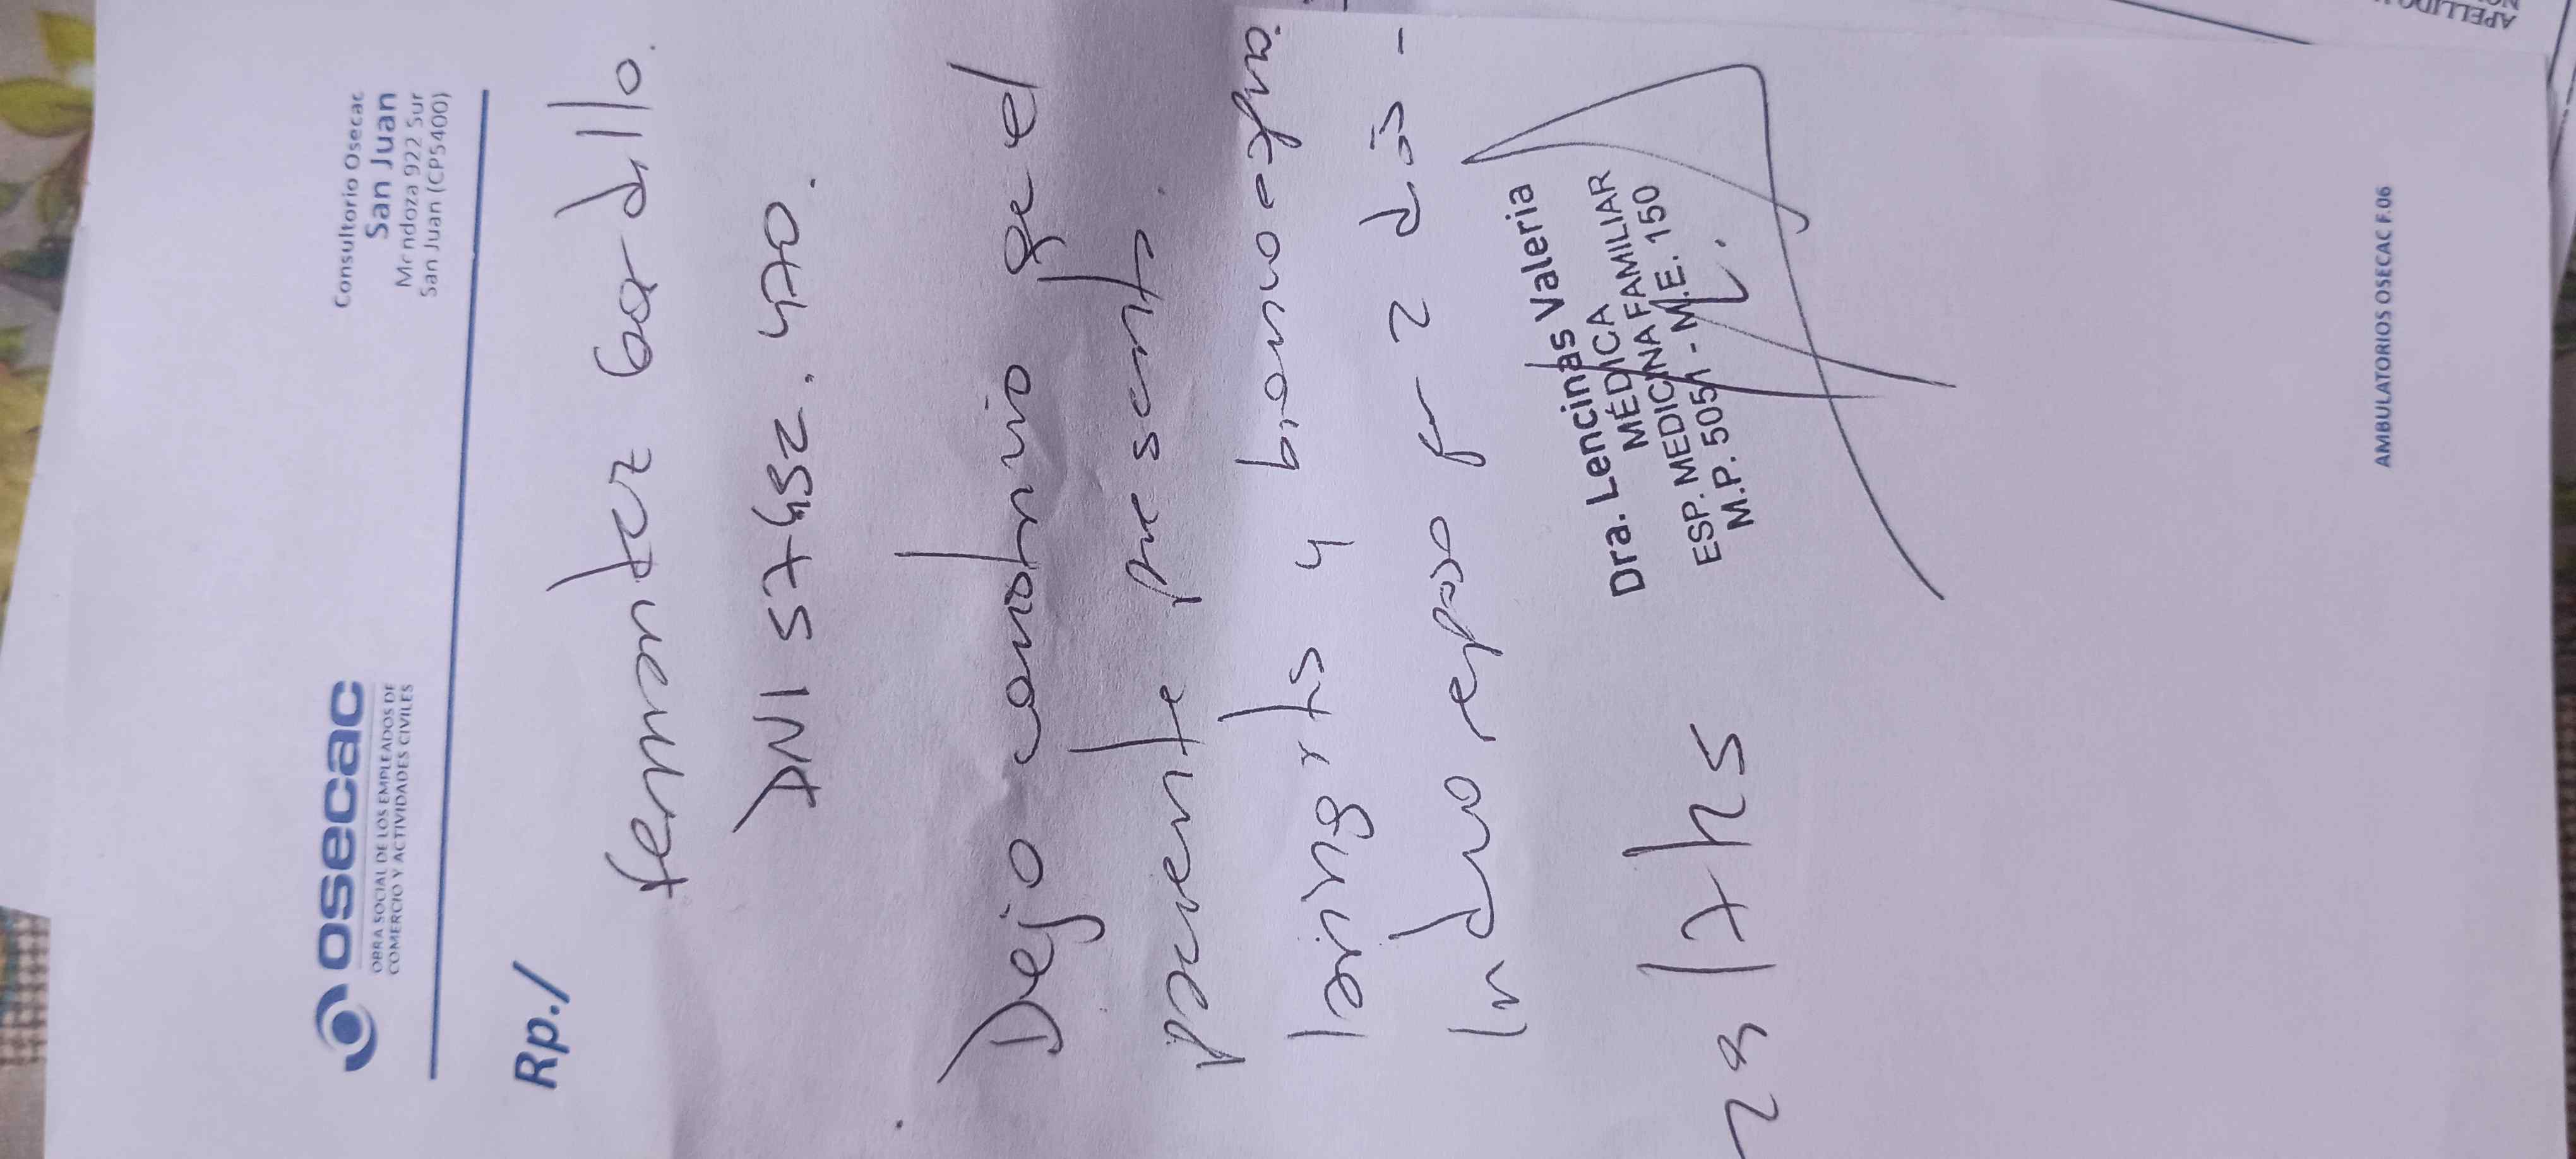 osecac
OBRA SOCIAL DE LOS EMPLEADOS DE
COMERCIO Y ACTIVIDADES CIVILES
Consultorio Osecac
San Juan
Mendoza 922 Sur
San Juan (CP5400)
Rp./
fernandez Gordillo.
DNI 57452.470.
Dejo constancia que el
paciente presenta
laringitis y
Indico reposo por 2 días -
Dra. Lencinas Valeria
MÉDICA
ESP. MEDICINA FAMILIAR
M.P. 5051 - M.E. 150
AMBULATORIOS OSECAC F.06
APELLIDO